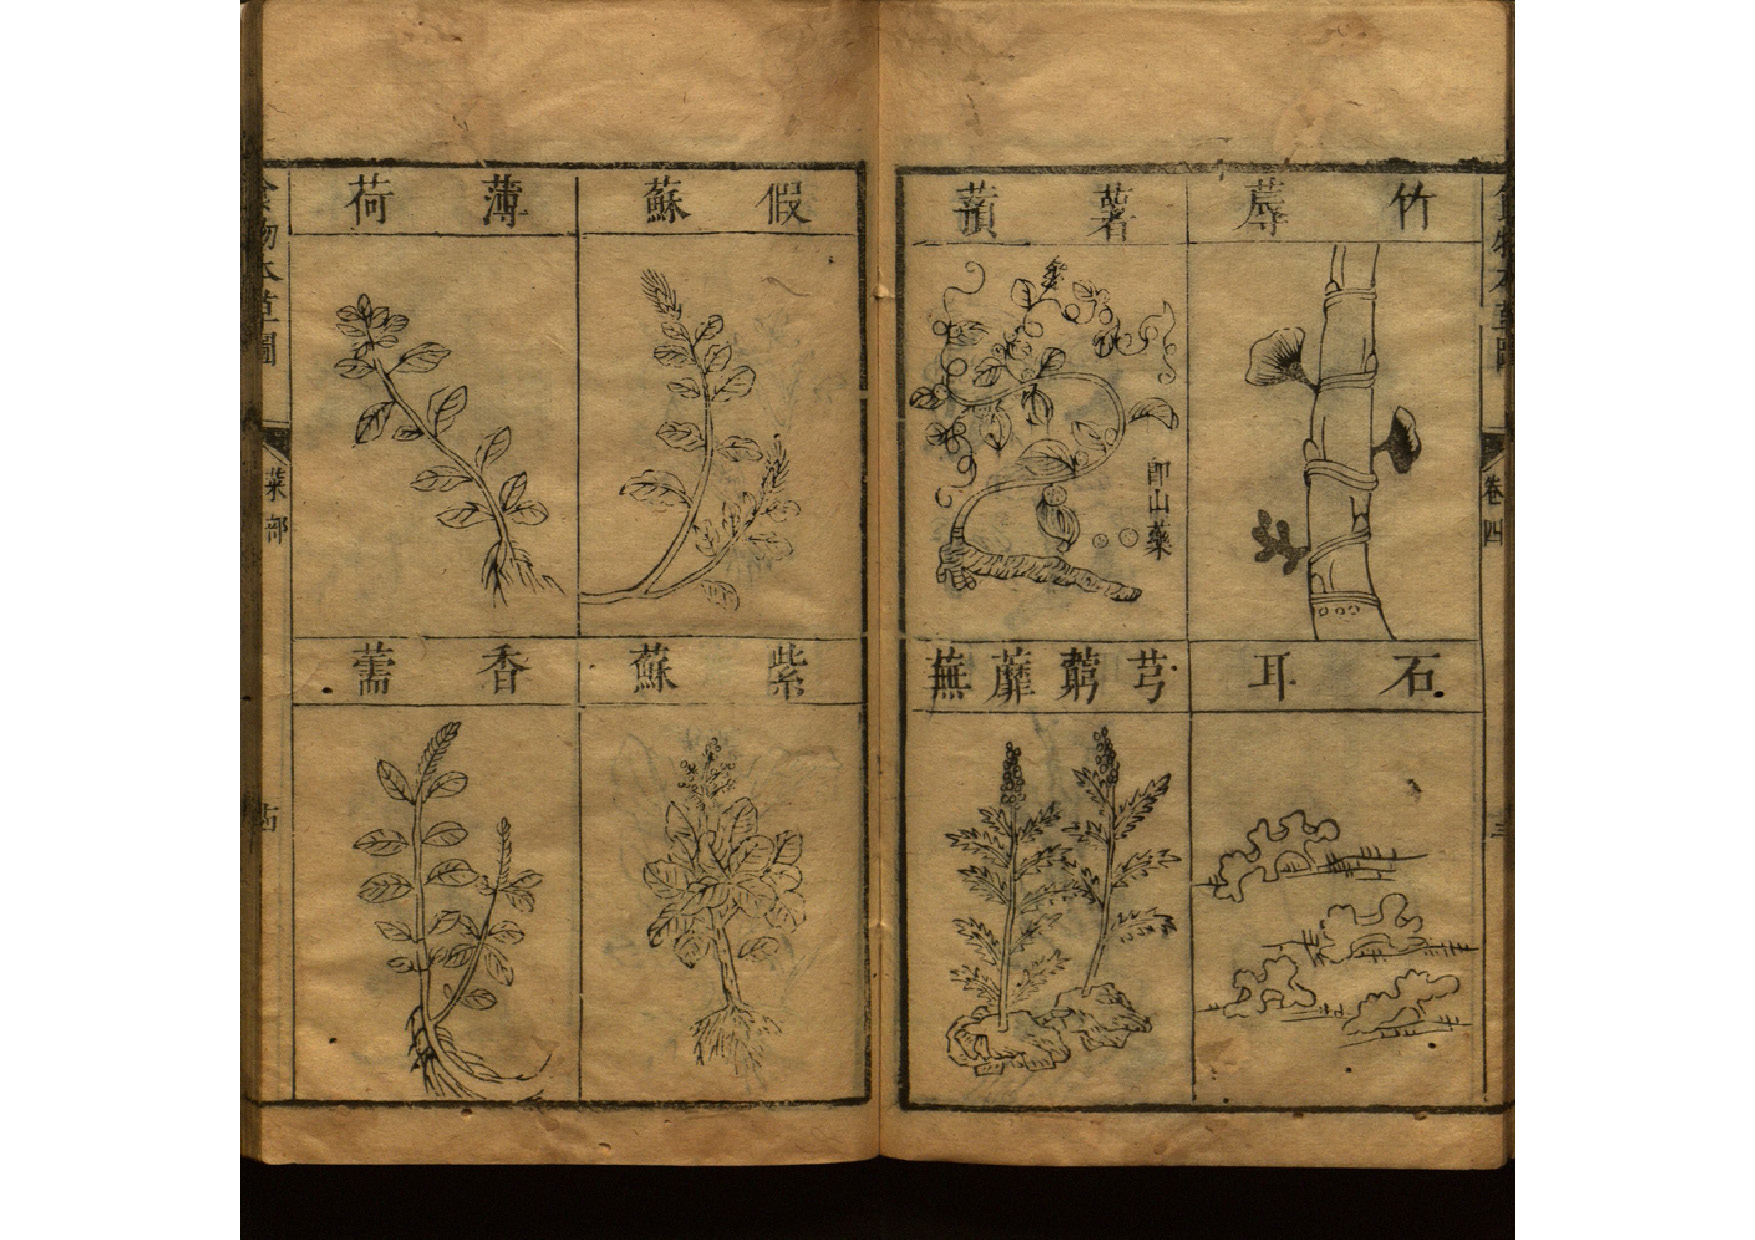 食物本草圖
卷四
竹蓐
薯蕷
即山藥
石耳
芎藭蘼蕪
假蘇
薄荷
紫蘇
香薷
食物本草圖
菜部